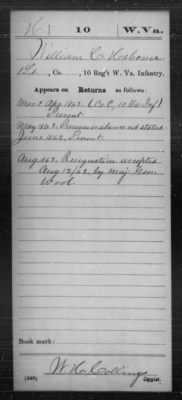 H 10 W. Va.
William C
1 Lt., Co. , 10 Reg't W. Va. Infantry.
Appears on Returns as follows:
Mar & Apr 1862 (Co C, 10 Va Inf)
Present
May 1862 Presence or absence not stated
June 1862, Present
Aug. 1862 Resignation accepted
Aug 12/62, by Maj Gen
Wool
Book mark:
(546) Copyist.